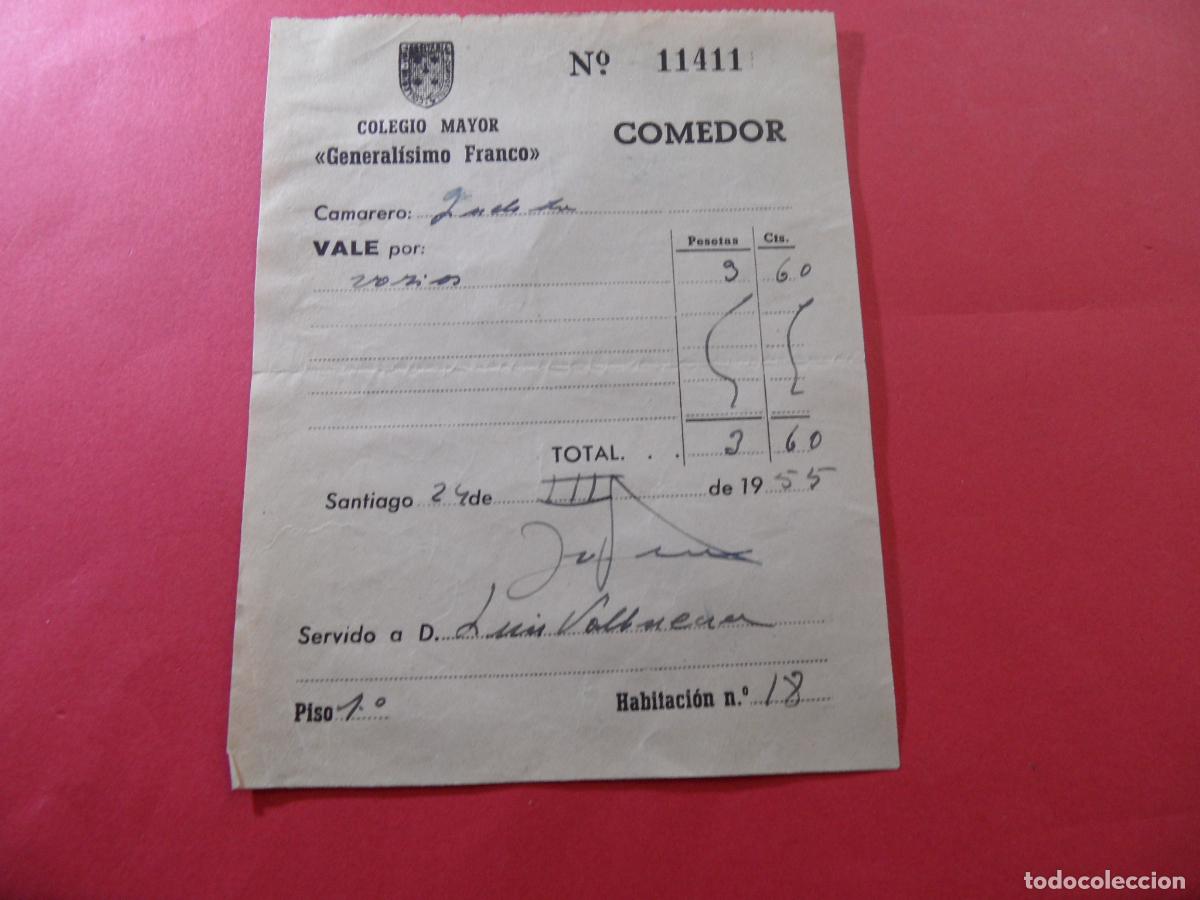 Nº 11411
COLEGIO MAYOR
«Generalísimo Franco»
COMEDOR
Camarero:
VALE por:
Pesetas Cts.
varios 3 60
TOTAL. . . 3 60
Santiago 24 de III de 1955
Servido a D. Luis Valbuena
Piso 1.º Habitación n.º 18
todocoleccion